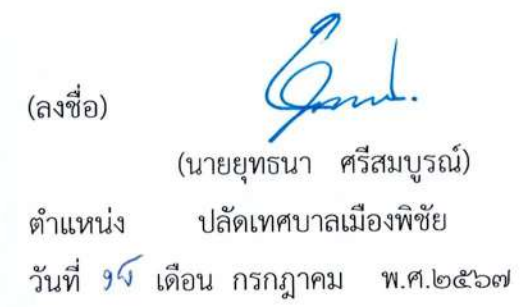 (ลงชื่อ)
(นายยุทธนา ศรีสมบูรณ์)
ตำแหน่ง ปลัดเทศบาลเมืองพิชัย
วันที่ เดือน กรกฎาคม พ.ศ.๒๕๖๗